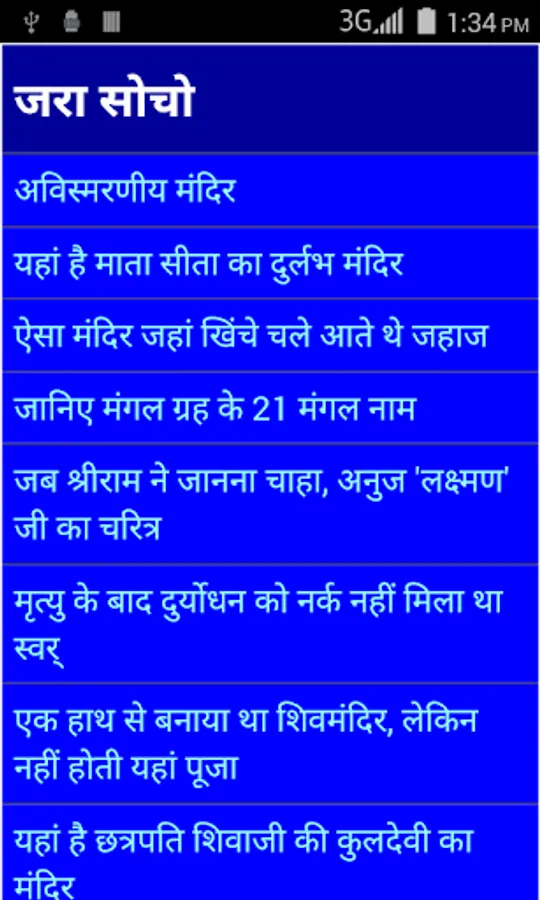 3G 1:34 PM
जरा सोचो
अविस्मरणीय मंदिर
यहां है माता सीता का दुर्लभ मंदिर
ऐसा मंदिर जहां खिंचे चले आते थे जहाज
जानिए मंगल ग्रह के 21 मंगल नाम
जब श्रीराम ने जानना चाहा, अनुज 'लक्ष्मण'
जी का चरित्र
मृत्यु के बाद दुर्योधन को नर्क नहीं मिला था
स्वर्
एक हाथ से बनाया था शिवमंदिर, लेकिन
नहीं होती यहां पूजा
यहां है छत्रपति शिवाजी की कुलदेवी का
मंदिर